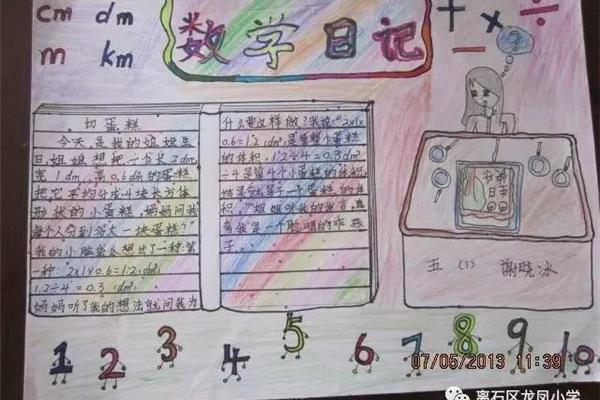 cm dm
m km
数学日记
+ - × ÷
?
切蛋糕
今天,是我的姐姐生
日,姐姐想把一个长2dm,
宽1dm,高0.6dm的蛋糕
把它平均分成4块长方体
形状的小蛋糕,妈妈问我
每个人分到多大一块蛋糕?
我的小脑袋想出了一种第
一种:"2×1×0.6=1.2(dm³)
1.2÷4=0.3(dm³)
妈妈听了我的想法就问我为
什么要这样做?我说:"2×1×
0.6=1.2(dm³)是整个蛋糕
的体积,1.2÷4=0.3dm³
÷4是第4个小蛋糕的体积,
的体
积。"姐姐听我的发言,
我是一个聪明的乖孩
子。
数学日记
五(1) 谢晓冰
1 2 3 4 5 6 7 8 9 10
07/05/2013 11:39
离石区龙凤小学